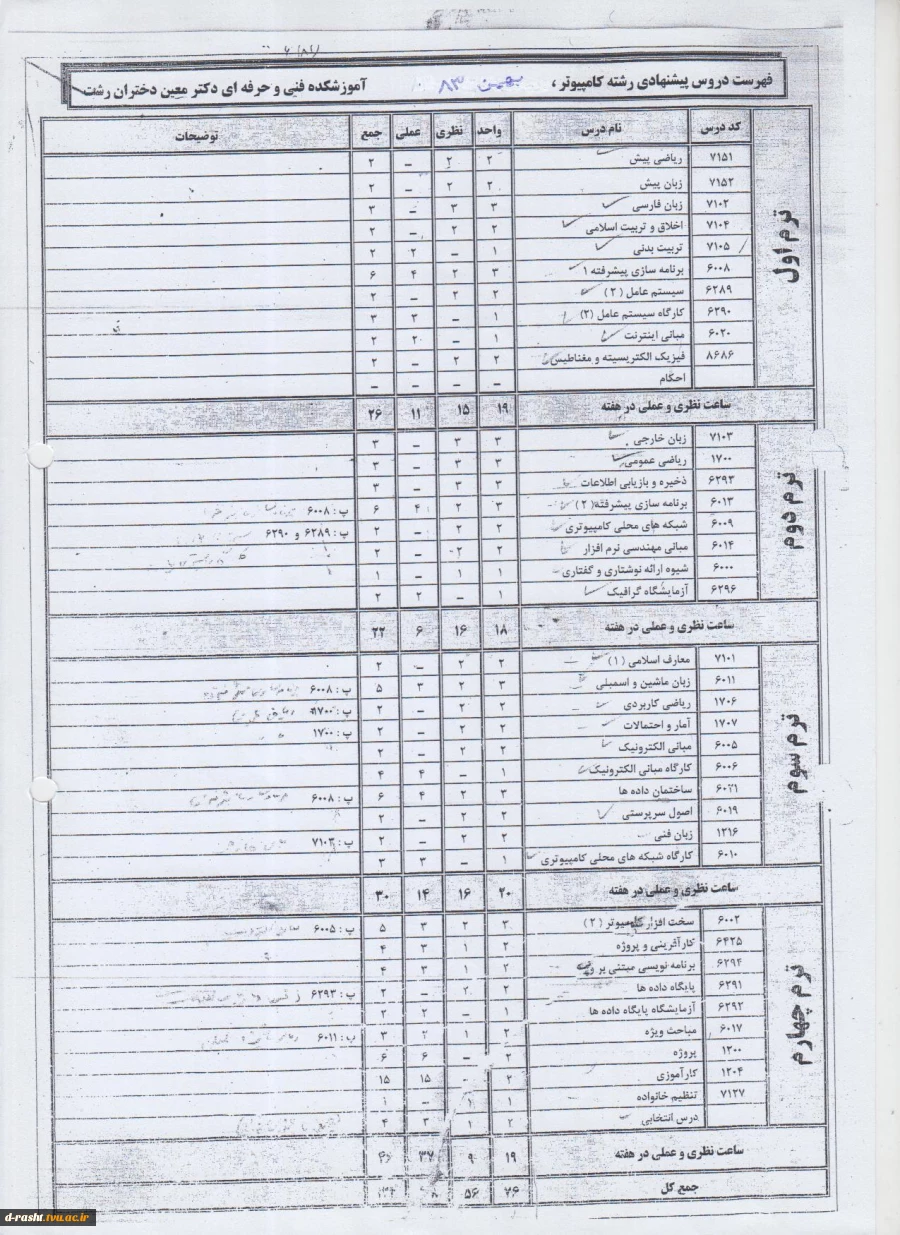 فهرست دروس پیشنهادی رشته کامپیوتر ، بهمن ۸۳ آموزشکده فنی و حرفه ای دکتر معین دختران رشت
کد درس نام درس واحد نظری عملی جمع توضیحات
ترم اول
۷۱۵۱ ریاضی پیش ۲ ۲ – ۲
۷۱۵۲ زبان پیش ۲ ۲ – ۲
۷۱۰۲ زبان فارسی ۳ ۳ – ۳
۷۱۰۴ اخلاق و تربیت اسلامی ۲ ۲ – ۲
۷۱۰۵ تربیت بدنی ۱ – ۲ ۲
۶۰۰۸ برنامه سازی پیشرفته ۱ ۳ ۲ ۴ ۶
۶۲۸۹ سیستم عامل (۲) ۲ ۲ – ۲
۶۲۹۰ کارگاه سیستم عامل (۲) ۱ – ۳ ۳
۶۰۲۰ مبانی اینترنت ۱ – ۲ ۲
۸۶۸۶ فیزیک الکتریسیته و مغناطیس ۲ ۲ – ۲
احکام – – – –
ساعت نظری و عملی در هفته ۱۹ ۱۵ ۱۱ ۲۶
ترم دوم
۷۱۰۳ زبان خارجی ۳ ۳ – ۳
۱۷۰۰ ریاضی عمومی ۳ ۳ – ۳
۶۲۹۳ ذخیره و بازیابی اطلاعات ۳ ۳ – ۳
۶۰۱۳ برنامه سازی پیشرفته (۲) ۳ ۲ ۴ ۶ پ : ۶۰۰۸
۶۰۰۹ شبکه های محلی کامپیوتری ۲ ۲ – ۲ پ : ۶۲۸۹ و ۶۲۹۰
۶۰۱۴ مبانی مهندسی نرم افزار ۲ ۲ – ۲
۶۰۰۰ شیوه ارائه نوشتاری و گفتاری ۱ ۱ – ۱
۶۲۹۶ آزمایشگاه گرافیک ۱ – ۲ ۲
ساعت نظری و عملی در هفته ۱۸ ۱۶ ۶ ۲۲
ترم سوم
۷۱۰۱ معارف اسلامی (۱) ۲ ۲ – ۲
۶۰۱۱ زبان ماشین و اسمبلی ۳ ۲ ۳ ۵ پ : ۶۰۰۸
۱۷۰۶ ریاضی کاربردی ۲ ۲ – ۲ پ : ۱۷۰۰
۱۷۰۷ آمار و احتمالات ۲ ۲ – ۲ پ : ۱۷۰۰
۶۰۰۵ مبانی الکترونیک ۲ ۲ – ۲
۶۰۰۶ کارگاه مبانی الکترونیک ۱ – ۴ ۴
۶۰۲۱ ساختمان داده ها ۳ ۲ ۴ ۶ پ : ۶۰۰۸
۶۰۱۹ اصول سرپرستی ۲ ۲ – ۲
۱۲۱۶ زبان فنی ۲ ۲ – ۲ پ : ۷۱۰۳
۶۰۱۰ کارگاه شبکه های محلی کامپیوتری ۱ – ۳ ۳
ساعت نظری و عملی در هفته ۲۰ ۱۶ ۱۴ ۳۰
ترم چهارم
۶۰۰۲ سخت افزار کامپیوتر (۲) ۳ ۲ ۳ ۵ پ : ۶۰۰۵
۶۴۲۵ کارآفرینی و پروژه ۲ ۱ ۳ ۴
۶۲۹۴ برنامه نویسی مبتنی بر ۲ ۱ ۳ ۴
۶۲۹۱ پایگاه داده ها ۲ ۲ – ۲ پ : ۶۲۹۳
۶۲۹۲ آزمایشگاه پایگاه داده ها ۱ – ۲ ۲
۶۰۱۷ مباحث ویژه ۲ ۱ ۲ ۳ پ : ۶۰۱۱
۱۲۰۰ پروژه ۲ – ۶ ۶
۱۲۰۴ کارآموزی ۲ – ۱۵ ۱۵
۷۱۲۷ تنظیم خانواده ۱ ۱ – ۱
درس انتخابی ۲ ۱ ۳ ۴
ساعت نظری و عملی در هفته ۱۹ ۹ ۳۷ ۴۶
جمع کل ۷۶ ۵۶
d-rasht.tvu.ac.ir